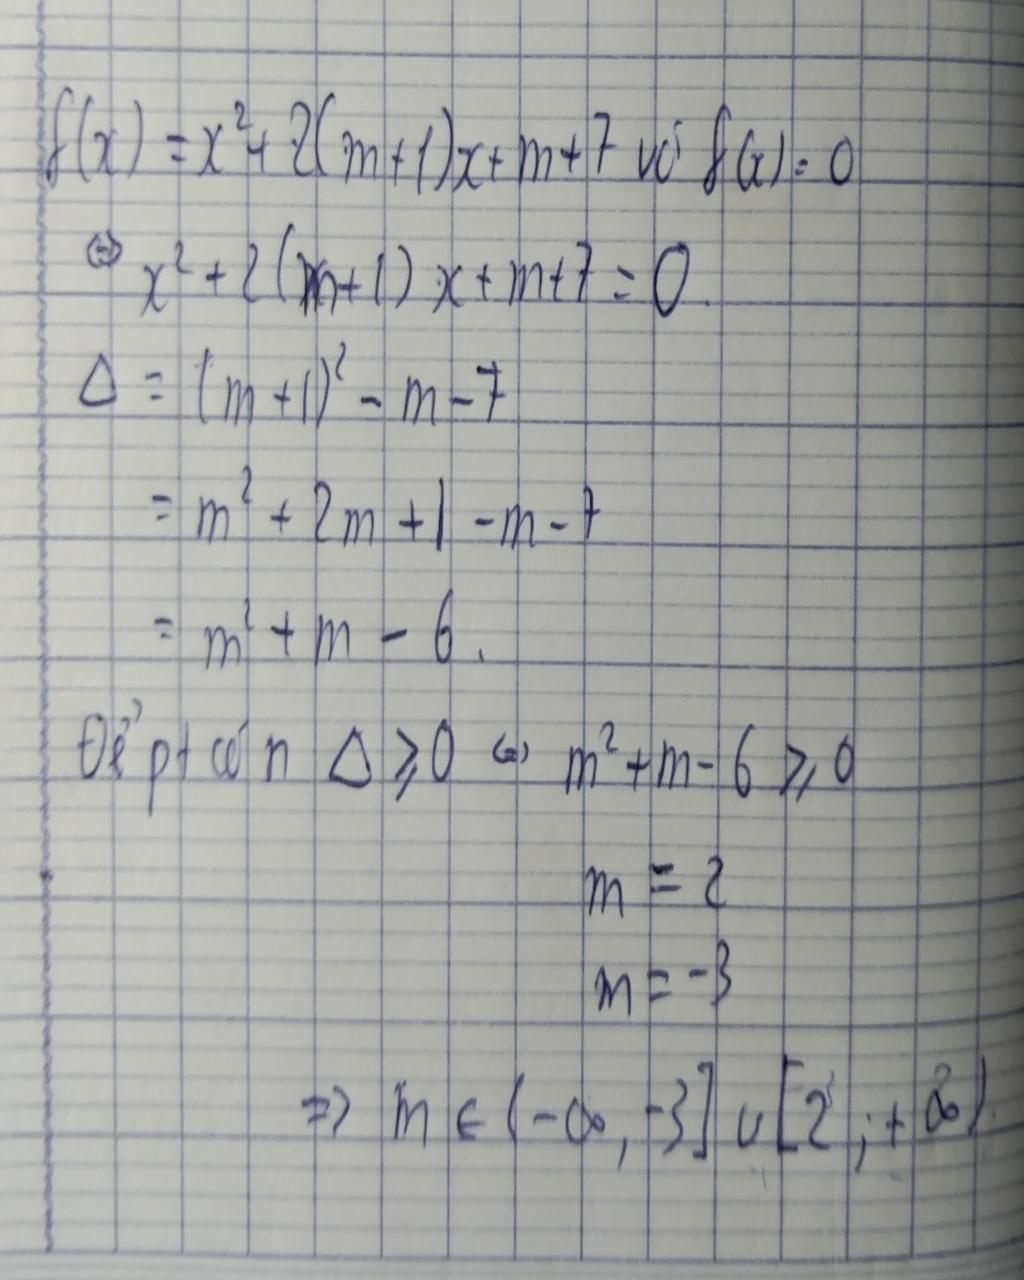 f(x) = x² + 2(m+1)x + m + 7 với f(x) = 0
⇔ x² + 2(m+1)x + m + 7 = 0.
Δ = (m+1)² - m - 7
= m² + 2m + 1 - m - 7
= m² + m - 6.
Để pt có n Δ ⩾ 0 ⇔ m² + m - 6 ⩾ 0
m = 2
m = -3
=> m ∈ (-∞, -3] ∪ [2; +∞).